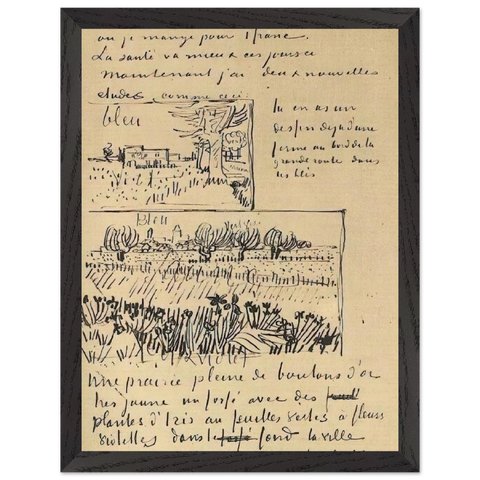 ou je mange pour 1 franc.
La santé va mieux ces jours ci
Maintenant j'ai deux nouvelles
etudes comme ceci
bleu
tu en as un
dessin deja d'une
ferme au bord de la
grande route dans
les blés
Vert
Bleu
Violet
Une prairie pleine de boutons d'or
tres jaune un fossé avec des
plantes d'Iris au feuilles vertes à fleurs
violettes dans le fond la ville